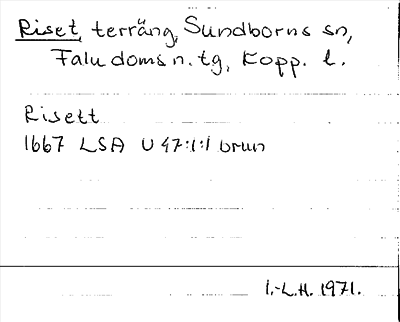 Riset, terräng, Sundborns sn,
Falu doms n. tg, Kopp. l.
Risett
1667 LSA U 47:1:1 brun
I.-L.H. 1971.